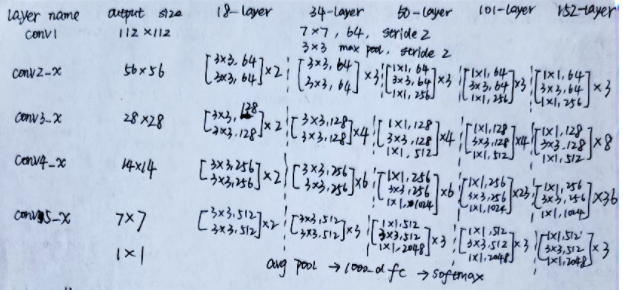 layer name output size 18-layer 34-layer 50-layer 101-layer 152-layer
conv1 112×112 7×7, 64, stride 2
3×3 max pool, stride 2
conv2-x 56×56 [3×3, 64 3×3, 64]×2 [3×3, 64 3×3, 64]×3 [1×1, 64 3×3, 64 1×1, 256]×3 [1×1, 64 3×3, 64 1×1, 256]×3 [1×1, 64 3×3, 64 1×1, 256]×3
conv3-x 28×28 [3×3, 128 3×3, 128]×2 [3×3, 128 3×3, 128]×4 [1×1, 128 3×3, 128 1×1, 512]×4 [1×1, 128 3×3, 128 1×1, 512]×4 [1×1, 128 3×3, 128 1×1, 512]×8
conv4-x 14×14 [3×3, 256 3×3, 256]×2 [3×3, 256 3×3, 256]×6 [1×1, 256 3×3, 256 1×1, 1024]×6 [1×1, 256 3×3, 256 1×1, 1024]×23 [1×1, 256 3×3, 256 1×1, 1024]×36
conv5-x 7×7 [3×3, 512 3×3, 512]×2 [3×3, 512 3×3, 512]×3 [1×1, 512 3×3, 512 1×1, 2048]×3 [1×1, 512 3×3, 512 1×1, 2048]×3 [1×1, 512 3×3, 512 1×1, 2048]×3
1×1 avg pool → 1000-d fc → softmax